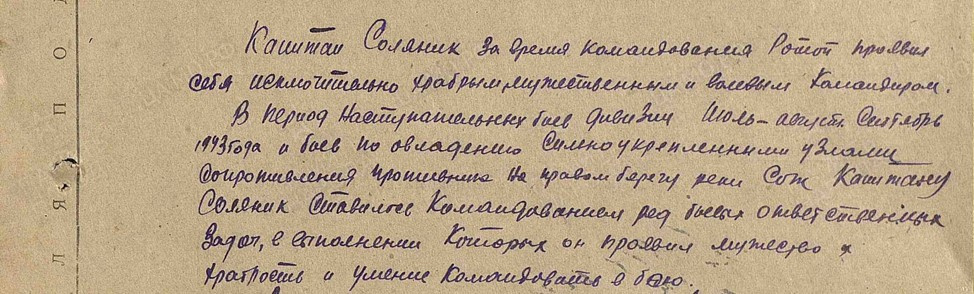 Капитан Соляник за время командования Ротой проявил
себя исключительно храбрым, мужественным и волевым Командиром.
В период Наступательных боев дивизии Июль – август Сентябрь
1943 года и боев по овладению Сильно укрепленными узлами
Сопротивления противника На правом берегу реки Сож Капитану
Соляник Ставилось Командованием ряд боевых ответственных
Задач, в выполнении Которых он проявил мужество и
храбрость и умение Командовать в бою.
Л Я П О Л